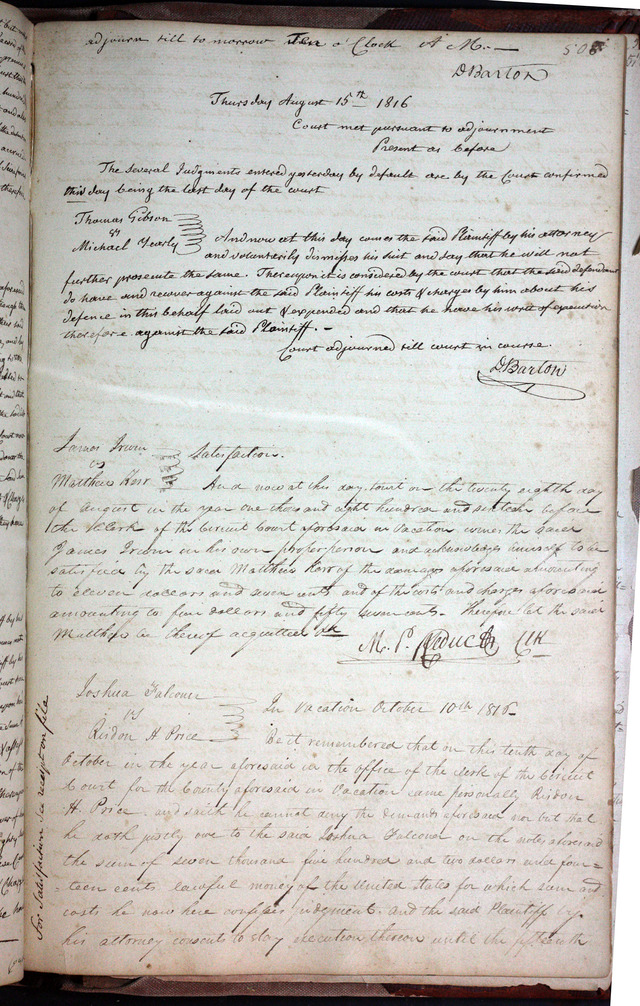 adjourn till to morrow Ten o'Clock A M. —
DBarton
Thursday August 15th 1816
Court met pursuant to adjournment
Present as before
The several Judgments entered yesterday by default are by the Court confirmed
this day being the last day of the court
Thomas Gibson
vs
Michael Yearly
And now at this day comes the said Plaintiff by his attorney
and voluntarily dismisses his suit and say that he will not
further prosecute the same. Thereupon it is considered by the court that the said defendant
do have and recover against the said Plaintiff his costs & charges by him about his
defence in this behalf laid out & expended and that he have his writ of execution
therefore against the said Plaintiff. —
Court adjourned till court in course.
DBarton
James Irwin
vs
Matthew Kerr
Satisfaction.
And now at this day to wit on the twenty eighth day
of August in the year one thousand eight hundred and sixteen before
the Clerk of the Circuit Court aforesaid in Vacation comes the said
James Irwin in his own proper person and acknowledges himself to be
satisfied by the said Matthew Kerr of the damages aforesaid amounting
to eleven dollars and seven cents and of the costs and charges aforesaid
amounting to five dollars and fifty seven cents. Therefore let the said
Matthew be thereof acquitted &c
M. P. Leduc Clk
Joshua Falconer
vs
Risdon H Price
In Vacation October 10th 1816
Be it remembered that on this tenth day of
October in the year aforesaid in the office of the clerk of the Circuit
Court for the County aforesaid in Vacation came personally Risdon
H. Price, and saith he cannot deny the demands aforesaid nor but that
he doth justly owe to the said Joshua Falconer on the notes aforesaid
the sum of seven thousand five hundred and two dollars and four=
=teen cents lawful money of the United States for which sum and
costs he now here confesses judgment. and the said Plaintiff by
his attorney consents to stay execution thereon until the fifteenth
For Satisfaction See receipt on file